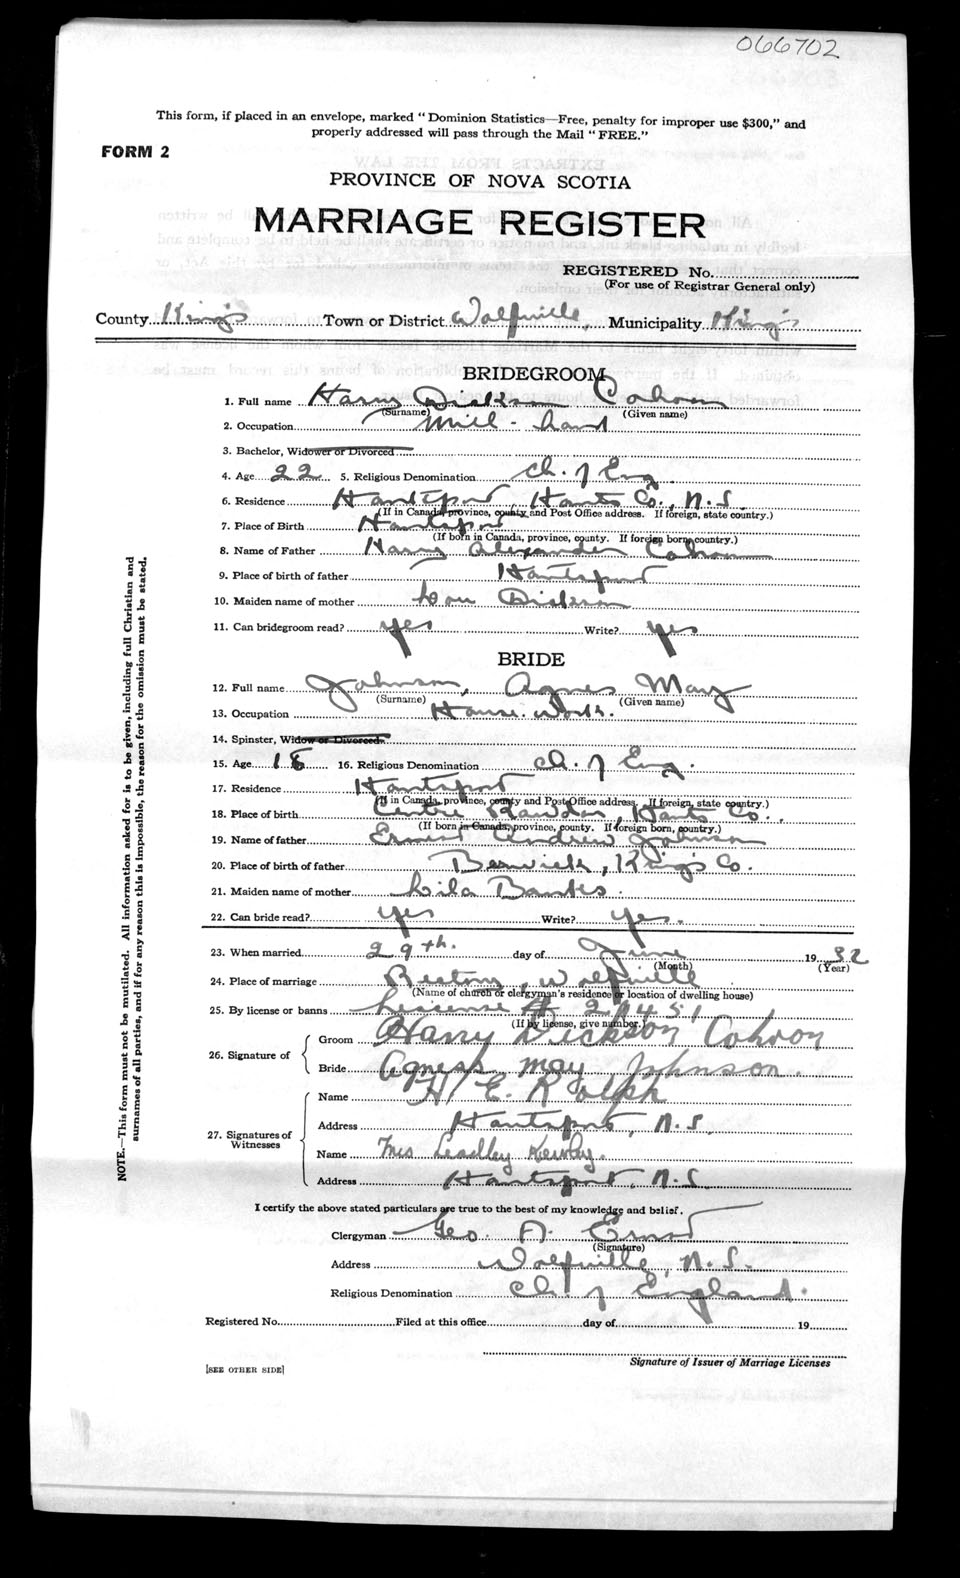 066702
This form, if placed in an envelope, marked "Dominion Statistics—Free, penalty for improper use $300," and
properly addressed will pass through the Mail "FREE."
FORM 2
PROVINCE OF NOVA SCOTIA
MARRIAGE REGISTER
REGISTERED No.
(For use of Registrar General only)
County King's Town or District Wolfville, Municipality King's
BRIDEGROOM
1. Full name Harry Dickson Cohoon
(Surname) (Given name)
2. Occupation Mill-hand
3. Bachelor, Widower or Divorced
4. Age 22 5. Religious Denomination Ch. of Eng.
6. Residence Hantsport, Hants Co., N.S.
(If in Canada, province, county and Post Office address. If foreign, state country.)
7. Place of Birth Hantsport
(If born in Canada, province, county. If foreign born, country.)
8. Name of Father Harry Alexander Cohoon
9. Place of birth of father Hantsport
10. Maiden name of mother Dickson
11. Can bridegroom read? yes Write? yes
BRIDE
12. Full name Johnson, Agnes May
(Surname) (Given name)
13. Occupation House-work.
14. Spinster, Widow or Divorced
15. Age 18 16. Religious Denomination Ch. of Eng.
17. Residence Hantsport
(If in Canada, province, county and Post Office address. If foreign, state country.)
18. Place of birth Centre Rawdon, Hants Co.
(If born in Canada, province, county. If foreign born, country.)
19. Name of father Ernest Andrew Johnson
20. Place of birth of father Berwick, King's Co.
21. Maiden name of mother Lila Banks.
22. Can bride read? yes Write? yes.
23. When married 29th. day of June 1932
(Month) (Year)
24. Place of marriage Rectory, Wolfville
(Name of church or clergyman's residence or location of dwelling house)
25. By license or banns License # 27451
(If by license, give number.)
26. Signature of
Groom Harry Dickson Cohoon
Bride Agness May Johnson.
27. Signatures of Witnesses
Name H. E. Rolph
Address Hantsport, N.S.
Name Mrs
Address Hantsport, N.S.
I certify the above stated particulars are true to the best of my knowledge and belief.
Clergyman Geo. A. Ernst
(Signature)
Address Wolfville, N.S.
Religious Denomination Ch. of England.
Registered No. Filed at this office day of 19
Signature of Issuer of Marriage Licenses
[SEE OTHER SIDE]
NOTE.—This form must not be mutilated. All information asked for is to be given, including full Christian and
surnames of all parties, and if for any reason this is impossible, the reason for the omission must be stated.